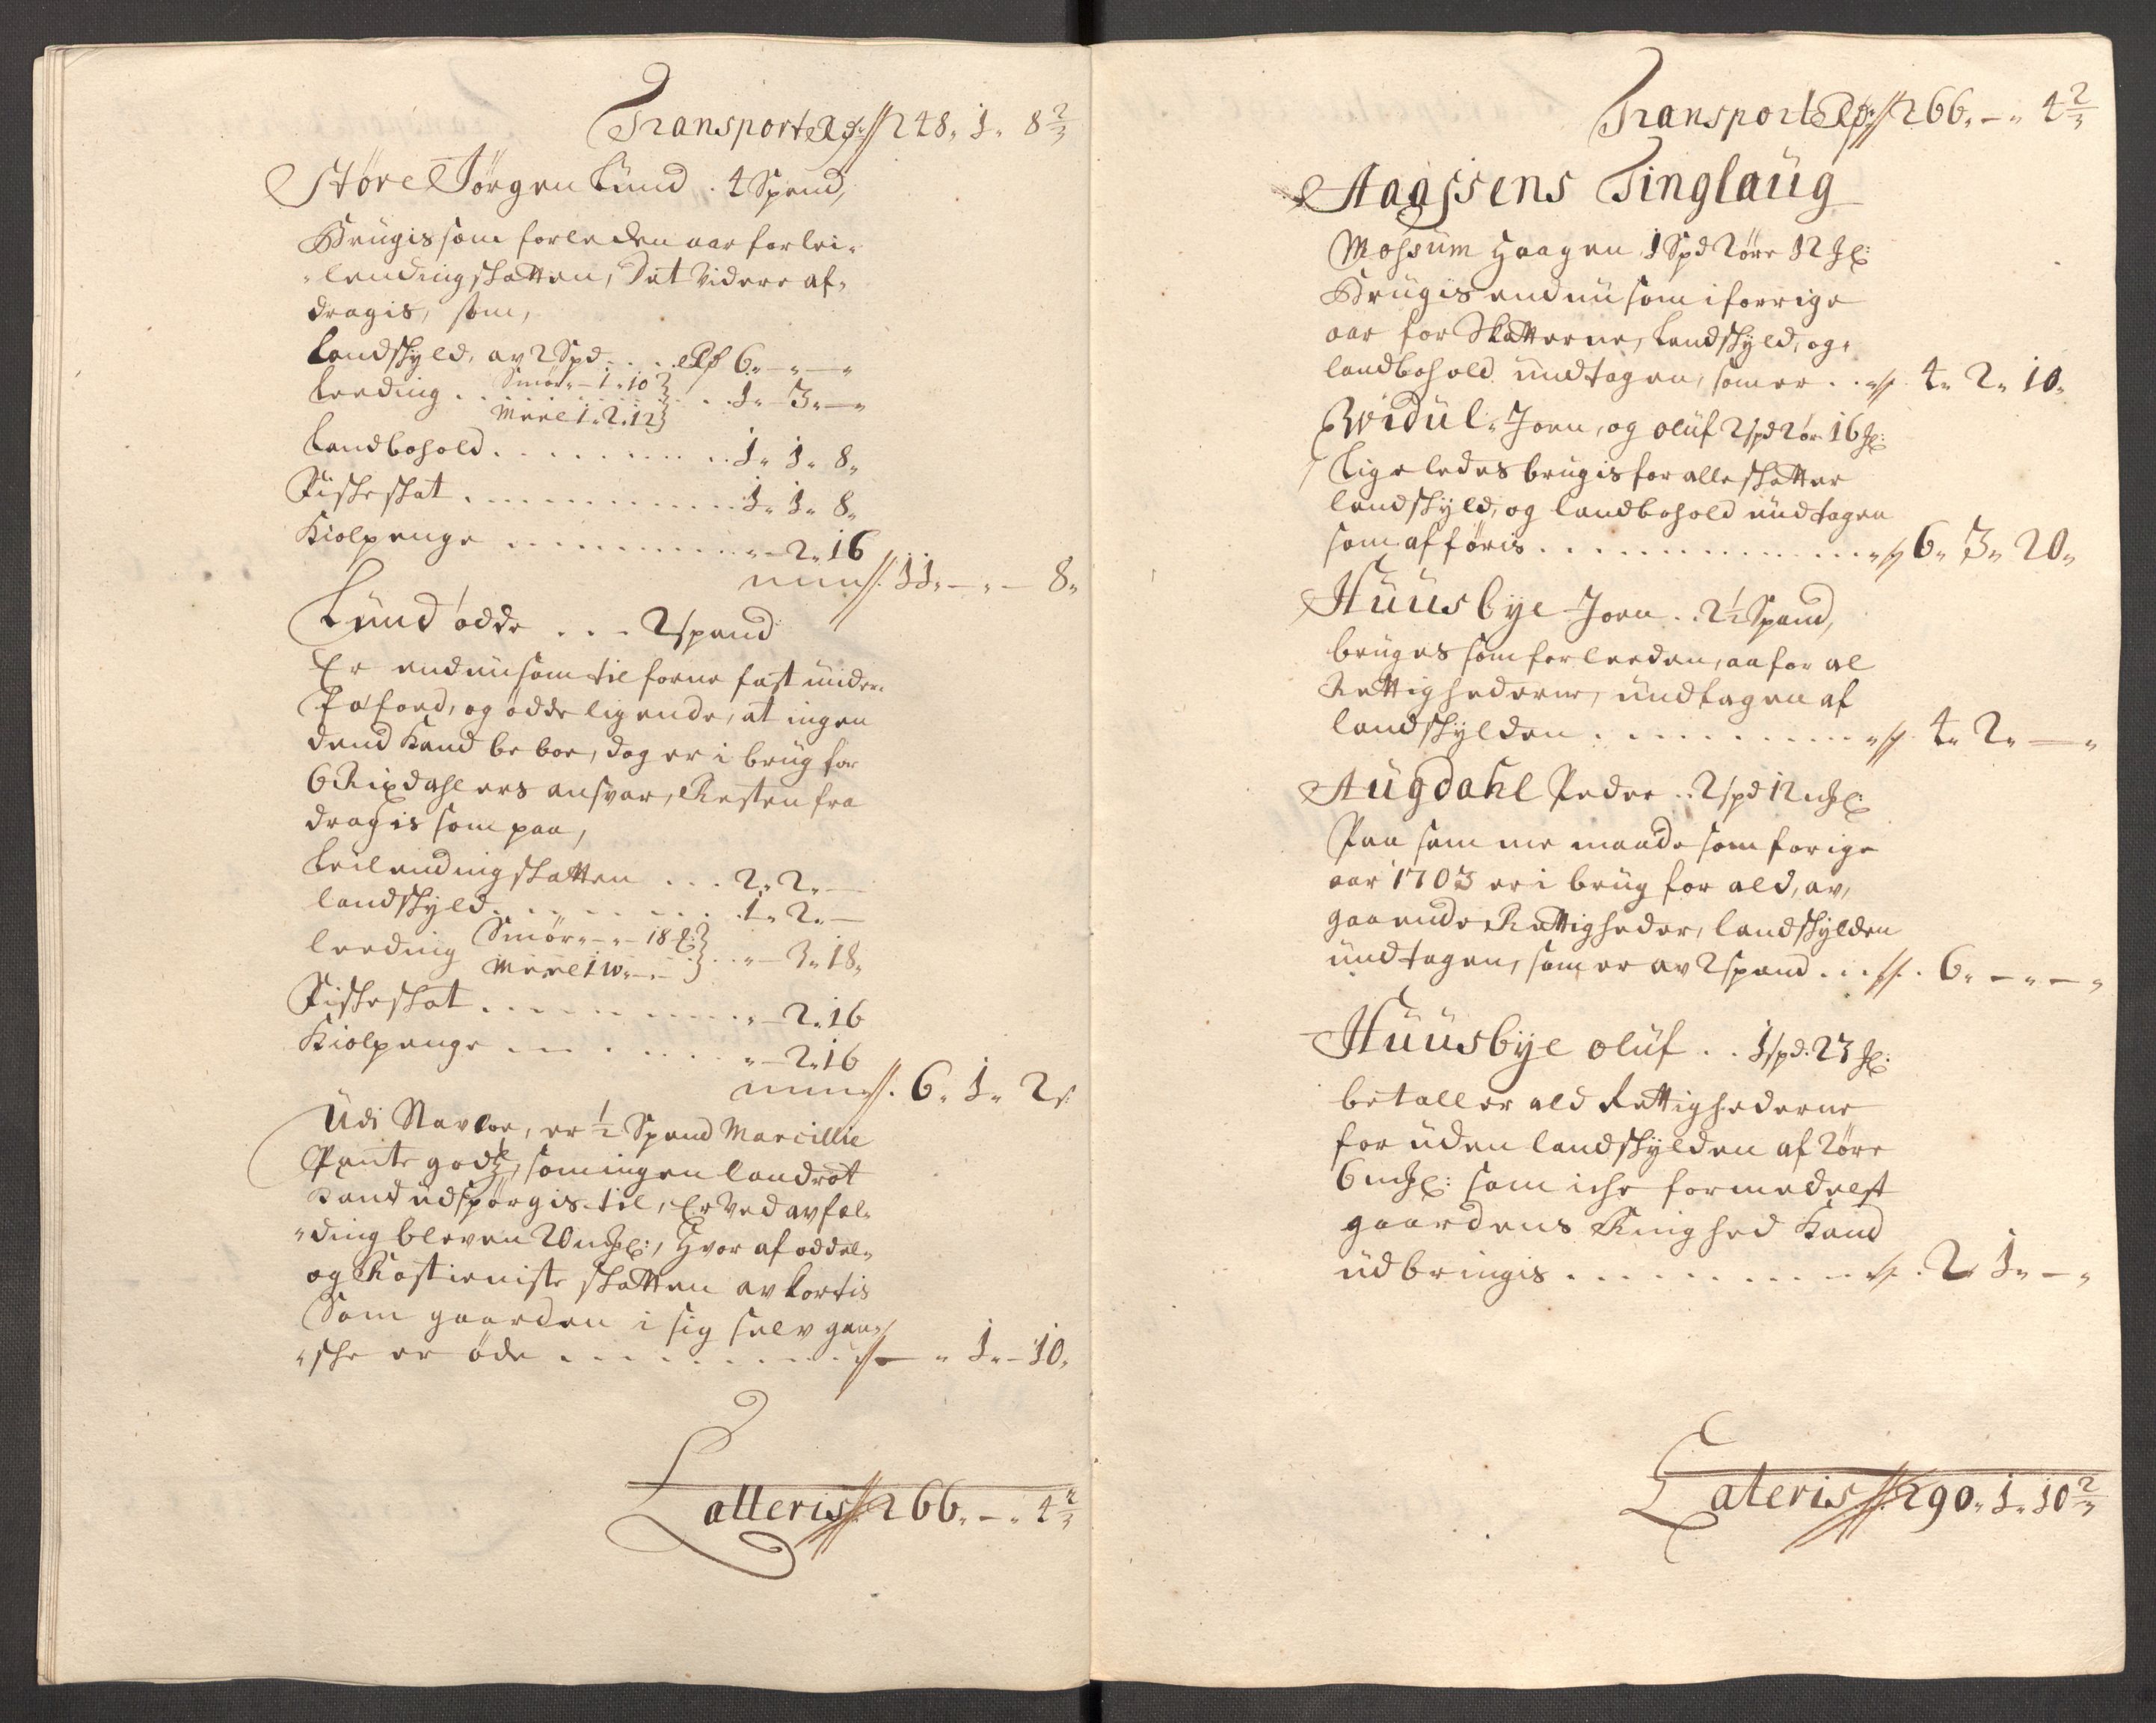 Transport Rd: 248. 1. 8 2/3
Støre Jørgen Lund. 4 Spand,
Brugis som forleden aar for lei-
lendingskatten, Dat videre af-
dragis, som,
Landskyld, av 2 Spd.... Rd 6. - -
Leeding. Smør. - 1. 10 . . 1. 3. -
Meel 1. 2. 12
Landbohold . . . . . . . . 1. 1. 8.
Fiskeskat . . . . . . . . 1. 1. 8.
Kiolpenge . . . . . . . . - 2. 16
11. - - 8.
Lund øde . . . 2 spand
Er endnu som tilforne fast under
og øde ligende, at ingen
dend kand beboe, dog er i brug for
6 Rixdahlers ansvar, Resten fra
dragis som paa,
Leilendingskatten . . . 2. 2. -
landskyld . . . . . . . 1. 2. -
leeding Smør. - - 18 . . - 3. 18.
Meel 1 w. - -
Fiskeskat . . . . . . . . - 2. 16
Kiolpenge . . . . . . . - 2. 16
6. 1. 2
Udi Navloe, er ½ Spand Marcillie
Pante godtz, som ingen landrot
kand udspørgis til, Er ved avfel-
ding bleven 20 mkl:, Hvor af oddel-
og Rostieniste skatten avkortis
Som gaarden i sig selv gan-
ske er øde . . . . . . . . - 1. - 10.
Latteris 266. - 4 2/3
Transport Rd: 266. - 4 2/3
Aaffiens Tinglaug
Mossum Haagen 1 Spd 2 øre 12 mkl:
Brugis endnu som i forrige
aar for Skatterne, Landskyld, og
landbohold undtagen, som er . . 4. 2. 10.
Joen, og Oluf 2 spd 2 ør 16 mkl:
Ligeledes brugis for alle skatter
landskyld, og landbohold undtagen
som afføris . . . . . . . . 6. 3. 20.
Huusbye Joen . . 2½ Spand,
bruges som forleeden, aa for al
Rettighederne, undtagen af
landskylden . . . . . . . . 4. 2. -
Augdahl Peder . . 2 spd 12 mkl:
Paa samme maade som forige
aar 1703 er i brug for ald, av,
gaaende Rettigheder, landskylden
undtagen, som er av 2 spand . . . 6. - - -
Huusbye Oluf . . 1 spd. 23 mkl:
betaller ald Rettighederne
for uden landskylden af 2 øre
6 mkl: som iche formedelst
gaardens Ringhed kand
udbringis . . . . . . . . . 2 1. -
Lateris 290. 1. 10 2/3